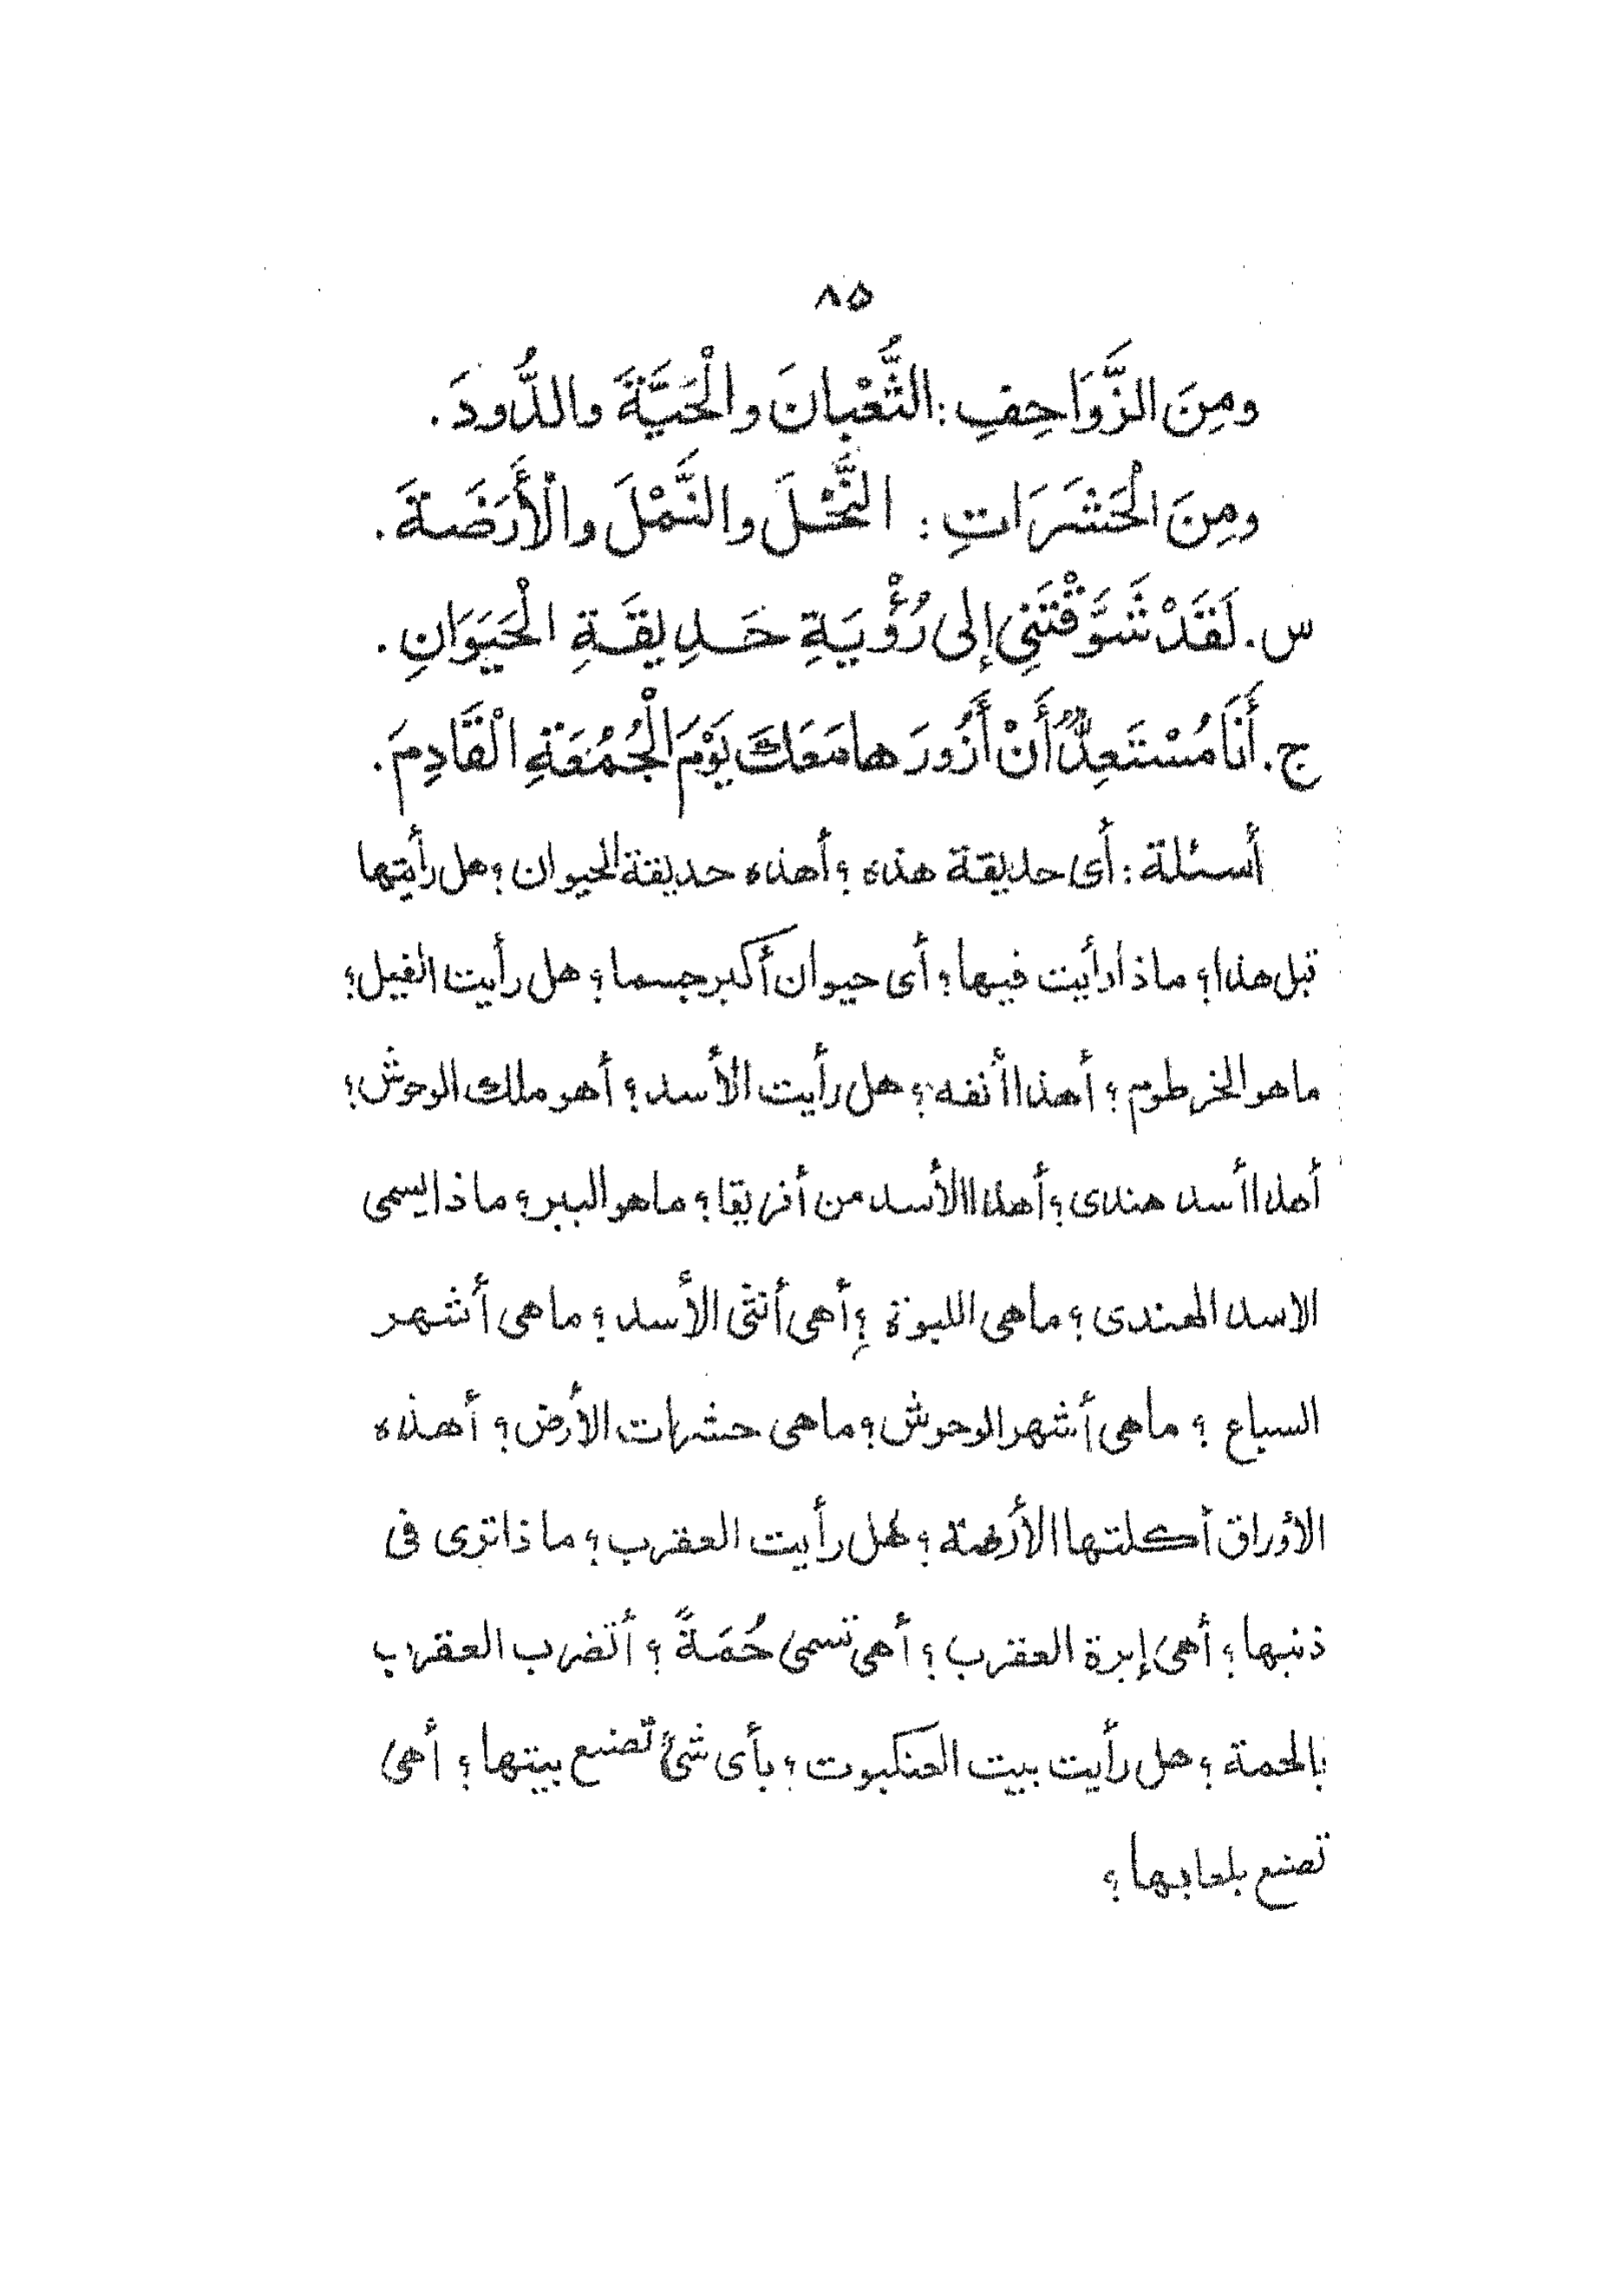 ٨٥
ومِنَ الزَّوَاحِفِ: الثُّعْبانَ والْحَيَّةَ والدُّودَ.
ومِنَ الْحَشَرَاتِ: النَّحْلَ والنَّمْلَ والْأَرَضَةَ.
س. لَقَدْ شَوَّقْتَنِي إلى رُؤْيَةِ حَدِيقَةِ الْحَيَوَانِ.
ج. أَنَا مُسْتَعِدٌّ أَنْ أَزُورَها مَعَكَ يَوْمَ الْجُمُعَةِ الْقَادِمَ.
أسئلة: أى حديقة هذه؟ أهذه حديقة الحيوان؟ هل رأيتها
قبل هذا؟ ماذا رأيت فيها؟ أى حيوان أكبر جسما؟ هل رأيت الفيل؟
ما هو الخرطوم؟ أهذا أنفه؟ هل رأيت الأسد؟ أهو ملك الوحوش؟
أهذا أسد هندى؟ أهذا الأسد من أفريقا؟ ما هو الببر؟ ماذا يسمى
الاسد الهندى؟ ما هى اللبوة؟ أهى أنثى الأسد؟ ما هى أشهر
السباع؟ ما هى أشهر الوحوش؟ ما هى حشرات الأرض؟ أهذه
الأوراق أكلتها الأرضة؟ هل رأيت العقرب؟ ماذا ترى فى
ذنبها؟ أهى إبرة العقرب؟ أهى تسمى حُمَةً؟ أتضرب العقرب
بالحمة؟ هل رأيت بيت العنكبوت؟ بأى شئ تصنع بيتها؟ أهى
تصنع بلعابها؟